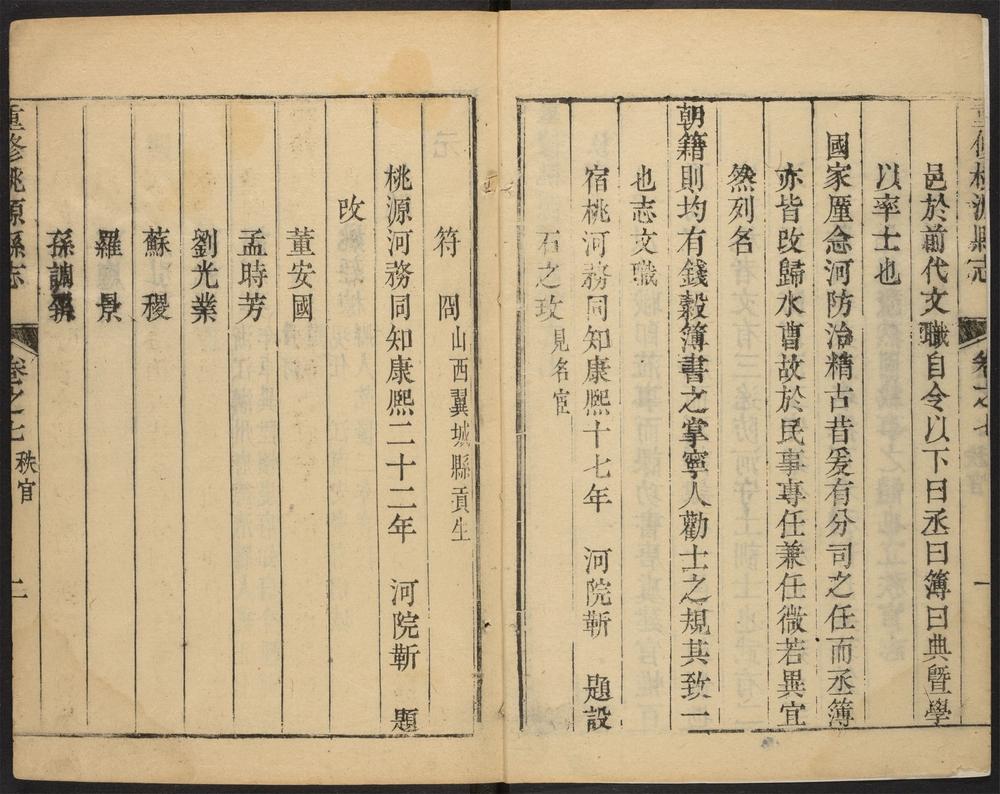 重修桃源縣志 卷之七 秩官 一
邑於前代文職自令以下曰丞曰簿曰典暨學
以率士也
國家厪念河防治精古昔爰有分司之任而丞簿
亦皆改歸水曹故於民事專任兼任微若異宜
然列名
朝籍則均有錢穀簿書之掌寧人勸士之規其致一
也志文職
宿桃河務同知康熙十七年 河院靳 題設
石之玫見名宦
符 問山西翼城縣貢生
桃源河務同知康熙二十二年 河院靳 題
改
董安國
孟時芳
劉光業
蘇 稷
羅 景
孫調鼐
重修桃源縣志 卷之七 秩官 二